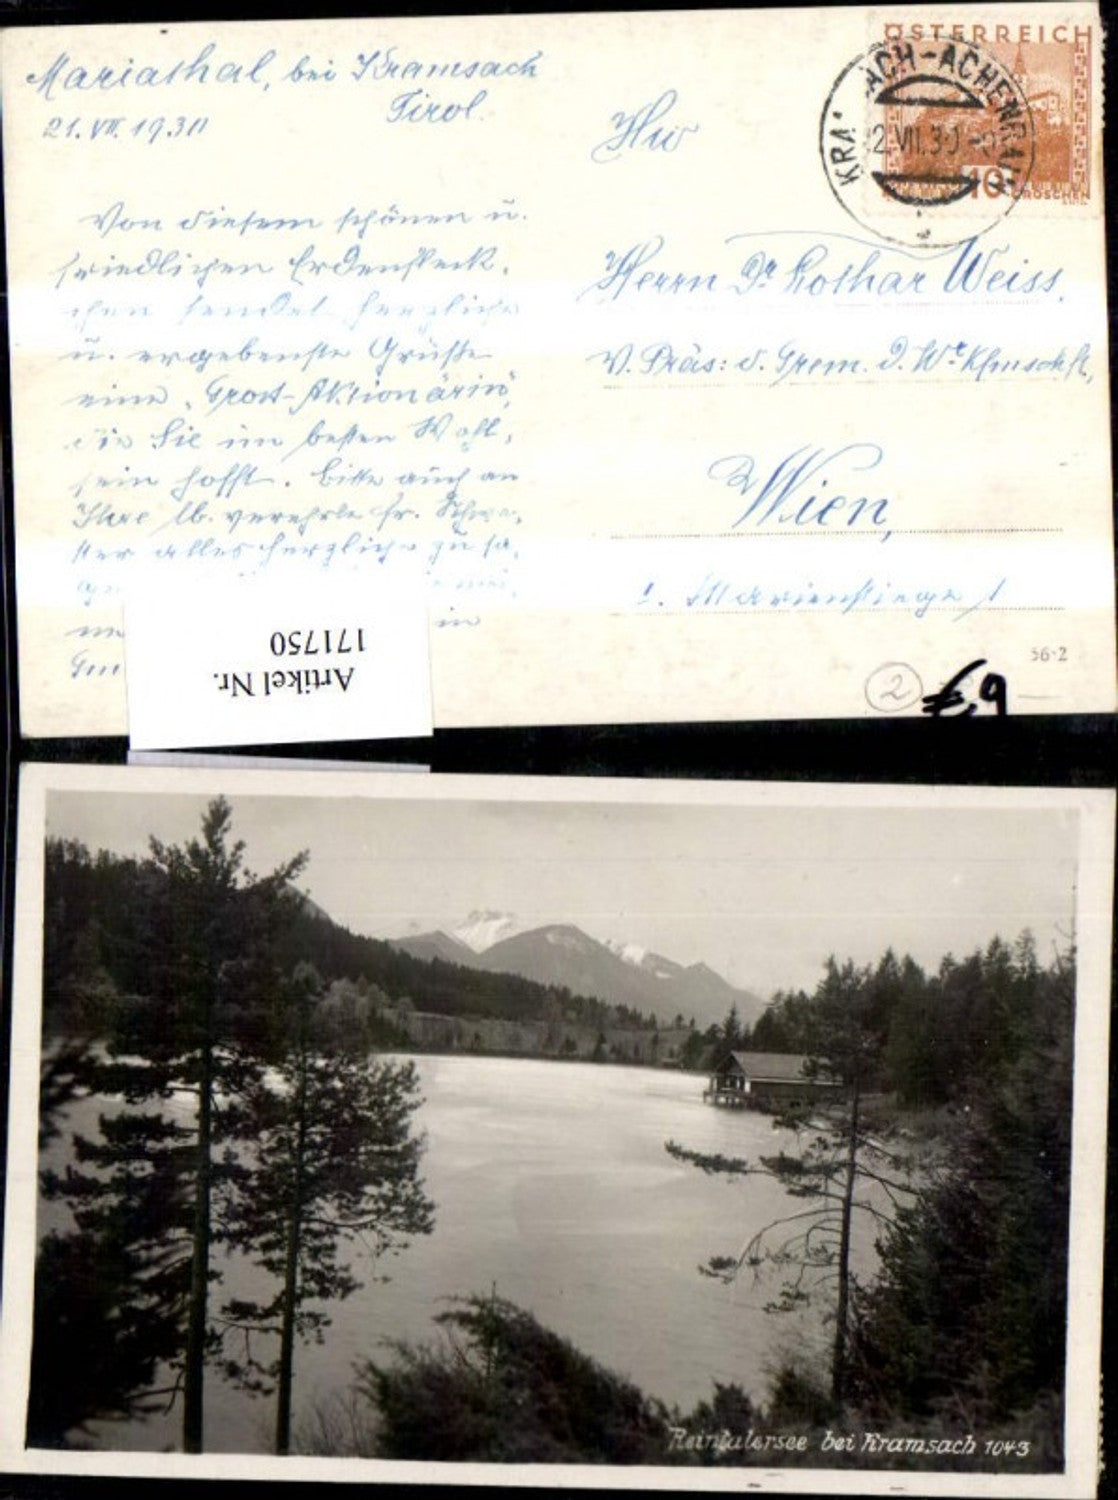 Mariathal, bei Kramsach
Tirol.
21. VII. 1930
Von diesem schönen u.
friedlichen Erdenfleck,
chen sendet herzliche
u. ergebenste Grüße
eine „Groß-Aktionärin“,
die Sie im besten Wohl,
sein hofft. Bitte auch an
Ihre lb. verehrte Fr. Schwe,
ster alles herzliche zu sa,
ÖSTERREICH
10
GROSCHEN
KRA ACH-ACHENRAIN
2.VII.30
Herrn Dr Lothar Weiss,
V. Präs: d. Grem. d. Wr Kfmschft,
Wien,
1. Marienstiege 1
56-2
2
€ 9
Artikel Nr.
171750
Reintalersee bei Kramsach 1043